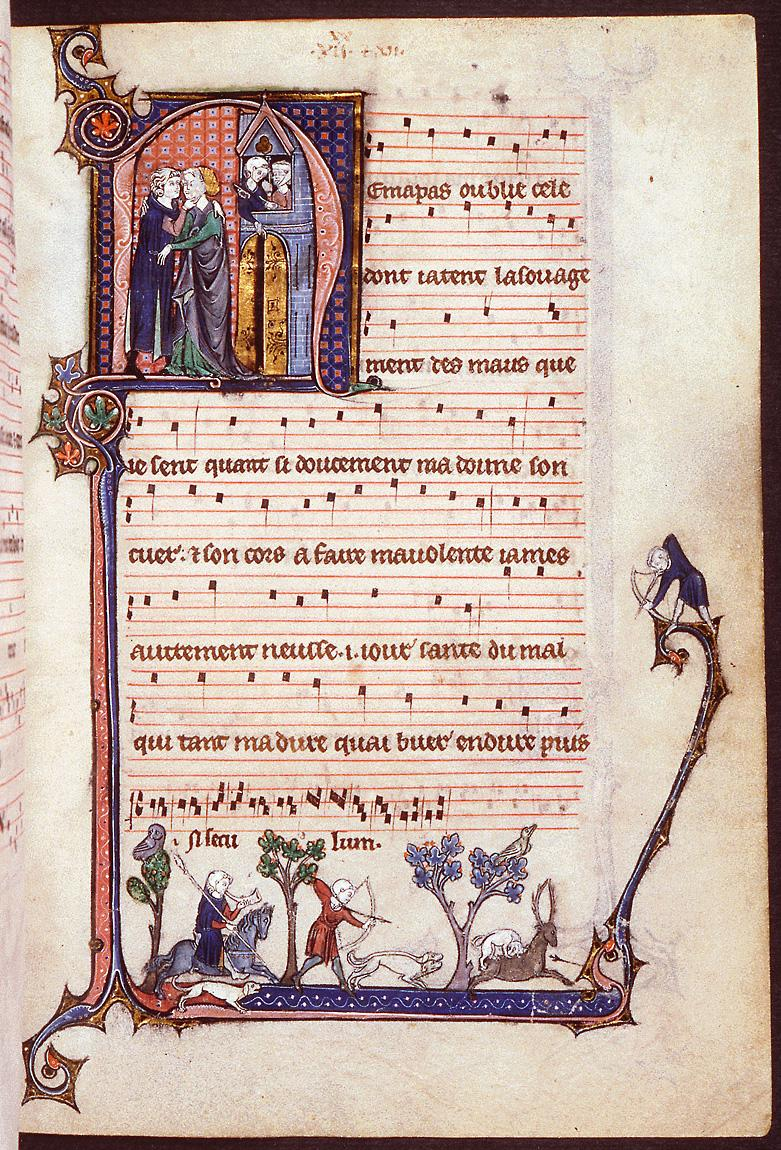 NEmapas oublie cele
dont iatent lasouage
ment des maus que
ie sent quant si doucement ma doune son
cuer. ⁊ son cors a faire mauolente iames
autrement neusse .i. iour sante du mal
qui tant madure quai buer endure puis
In secu lum.